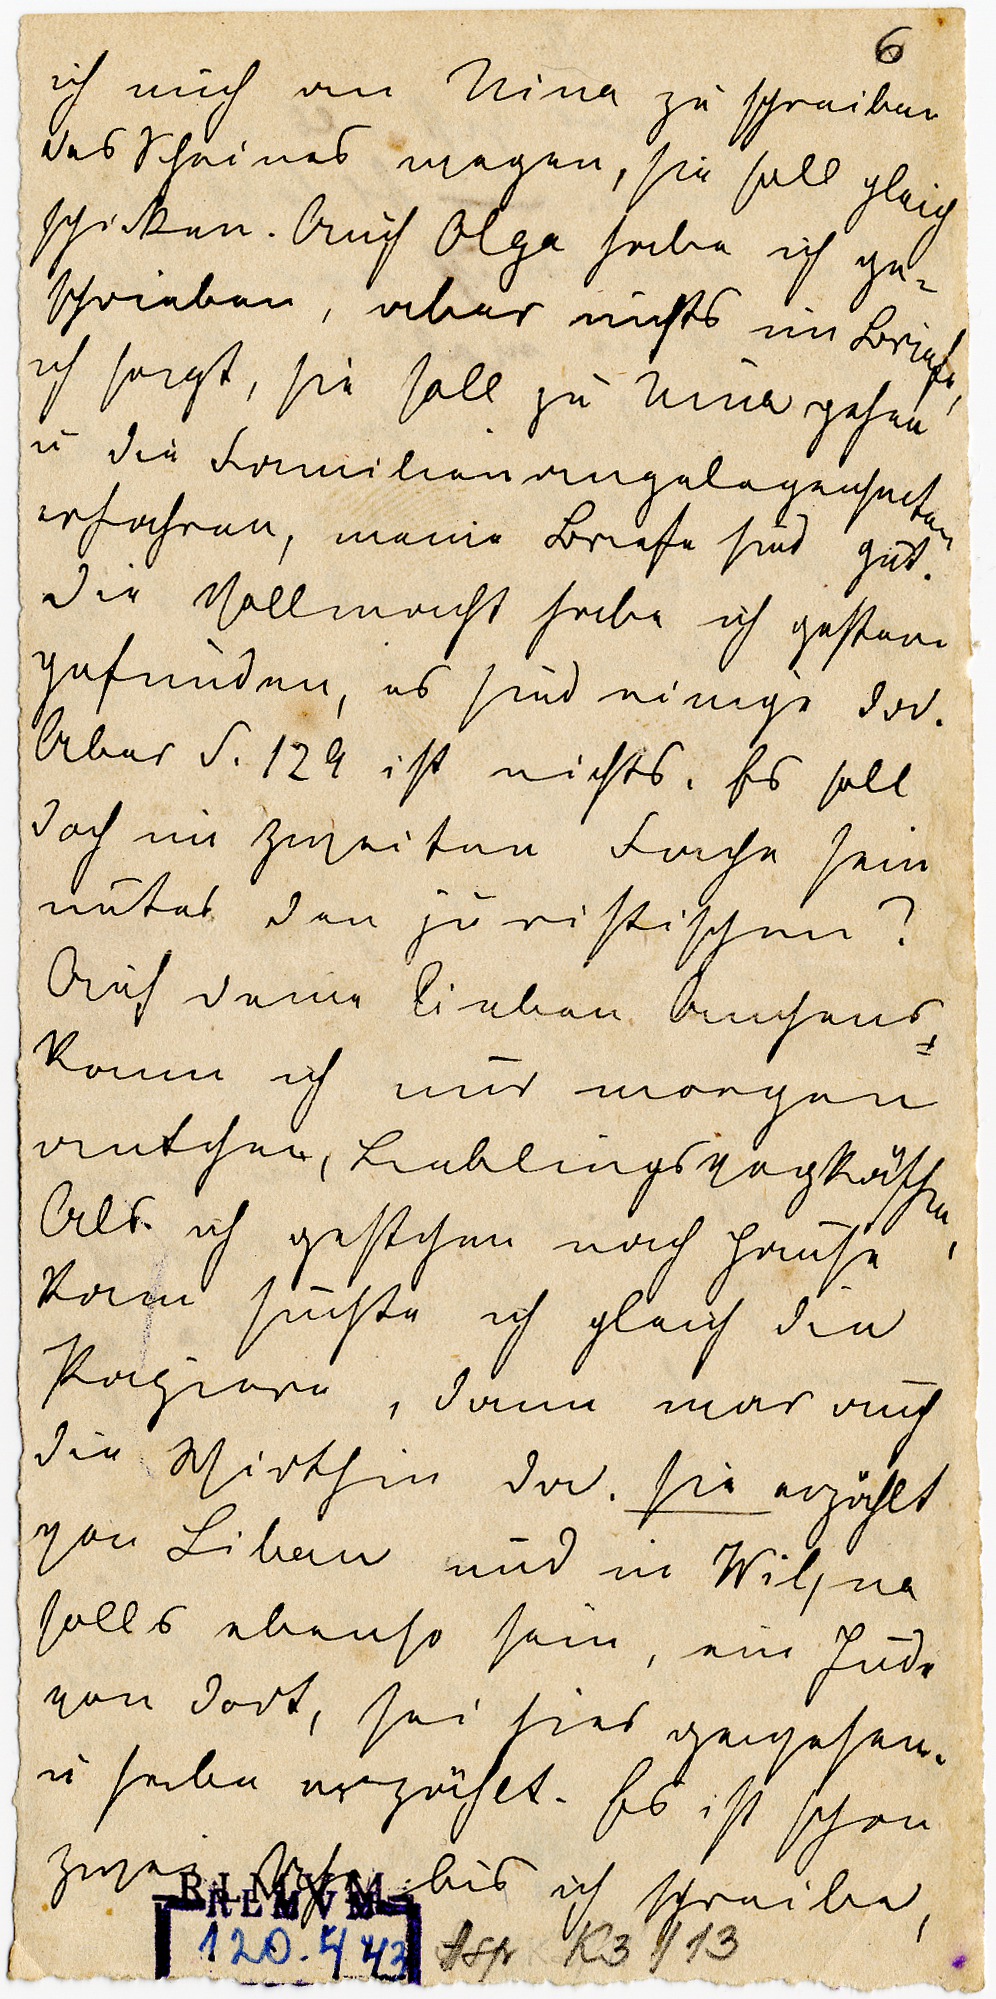 6
ich mich an Nina zu schreiben
des Scheines wegen, sie soll gleich
schicken. Auch Olga habe ich ge-
schrieben, aber nichts im Briefe,
ich sagt, sie soll zu Nina gehen
u die Familienangelegenheiten
erfahren, meine Briefe sind gut.
Die Vollmacht habe ich gestern
gefunden, es sind einige da.
Aber S. 129 ist nichts. Es soll
doch im zweiten Fache sein
unter den juristischen?
Auf deine lieben
kann ich nur morgen
antchen, Lieblings
Als ich gestchen nach Hause
kam suchte ich gleich die
Papiere, dann war auch
die Wirthin da. sie erzählt
von Libau und in Wilna
solls ebenso sein, ein Jude
von dort, sei hier gewesen.
u habe erzählt. Es ist schon
zwei Uhr bis ich schreibe,
RLMVM
120.443 K3 13